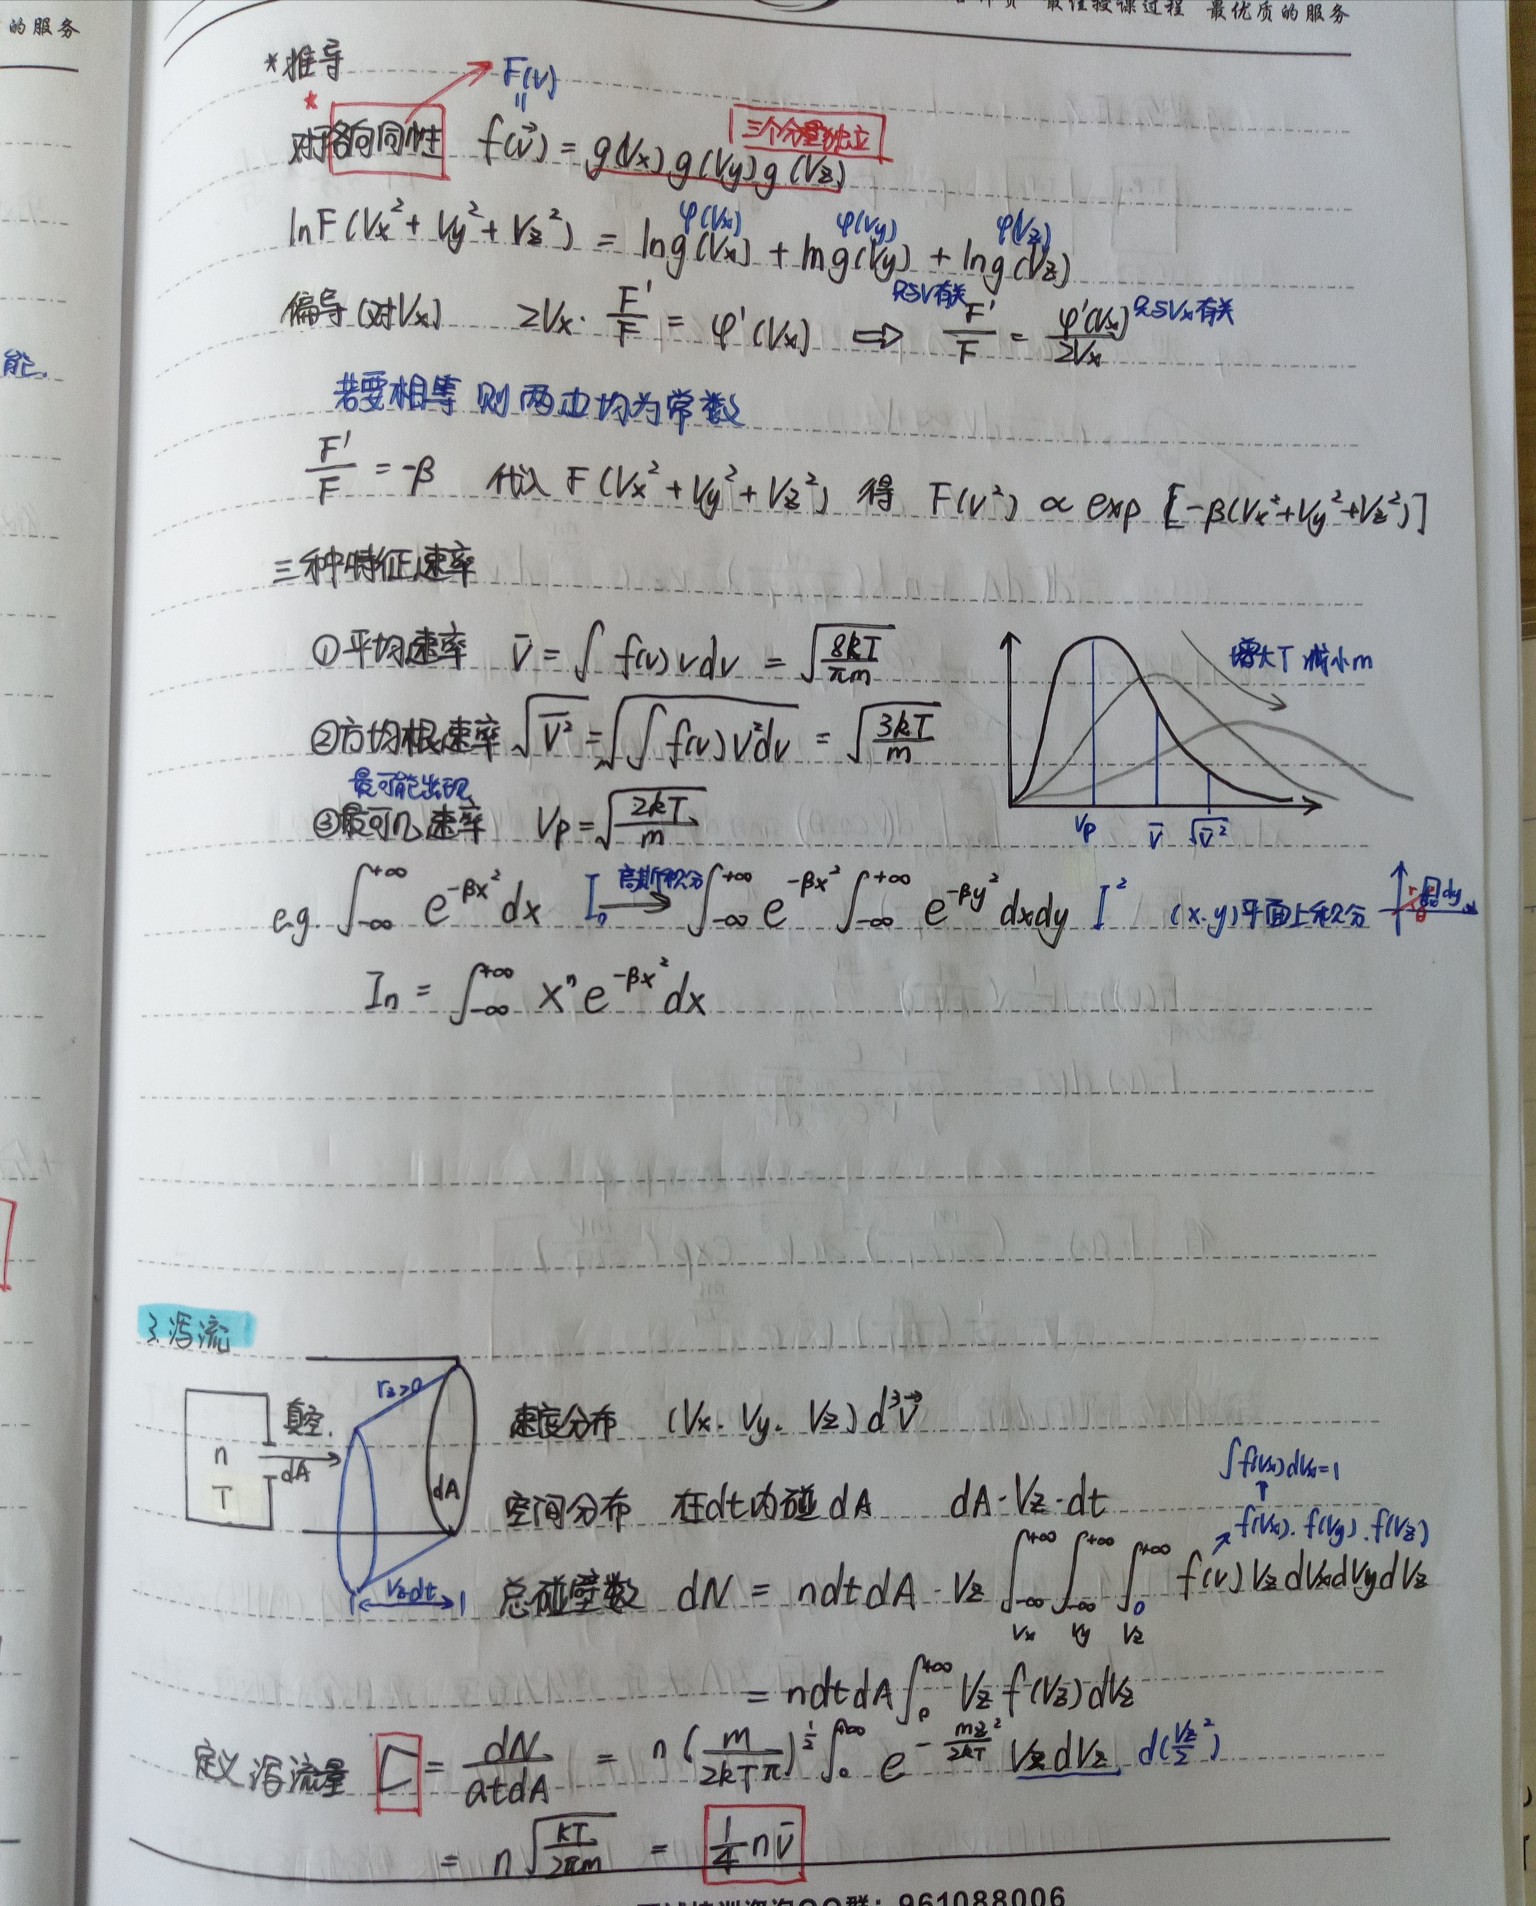 的服务
最佳授课过程 最优质的服务
*推导
F(v)
=
★
对于各向同性 f(v⃗) = g(Vx) g(Vy) g(Vz)
三个分量独立
φ(Vx) φ(Vy) φ(Vz)
lnF(Vx²+Vy²+Vz²) = lng(Vx) + lng(Vy) + lng(Vz)
只与V有关 只与Vx有关
偏导(对Vx) 2Vx·F'/F = φ'(Vx) ⇨ F'/F = φ'(Vx)/2Vx
能.
若要相等 则两边均为常数
F'/F = -β 代入 F(Vx²+Vy²+Vz²) 得 F(v²) ∝ exp [-β(Vx²+Vy²+Vz²)]
三种特征速率
①平均速率 V̄ = ∫ f(v) v dv = √(8kT/πm)
增大T 减小m
②方均根速率 √(V̄²) = √(∫ f(v) v² dv) = √(3kT/m)
最可能出现
③最可几速率 Vp = √(2kT/m)
Vp V̄ √(V̄²)
e.g. ∫_{-∞}^{+∞} e^{-βx²} dx I₀ 高斯积分→ ∫_{-∞}^{+∞} e^{-βx²} ∫_{-∞}^{+∞} e^{-βy²} dxdy I² (x.y)平面上积分
dy
In = ∫_{-∞}^{+∞} xⁿ e^{-βx²} dx
3.泻流
rz>0
n
T
真空.
dA
dA
Vzdt
速度分布 (Vx. Vy. Vz) d³v⃗
∫f(Vx)dVx=1
空间分布 在dt内碰dA dA·Vz·dt
f(Vx).f(Vy).f(Vz)
总碰壁数 dN = ndtdA·Vz ∫_{-∞}^{+∞} ∫_{-∞}^{+∞} ∫_{0}^{+∞} f(v) Vz dVxdVydVz
Vx Vy Vz
= ndtdA ∫_{0}^{+∞} Vz f(Vz) dVz
定义泻流量 Γ = dN/dtdA = n(m/2kTπ)^{1/2} ∫_{0}^{+∞} e^{-mz²/2kT} Vz dVz d(Vz²/2)
= n√(kT/2πm) = 1/4 n v̄
QQ群: 961088006